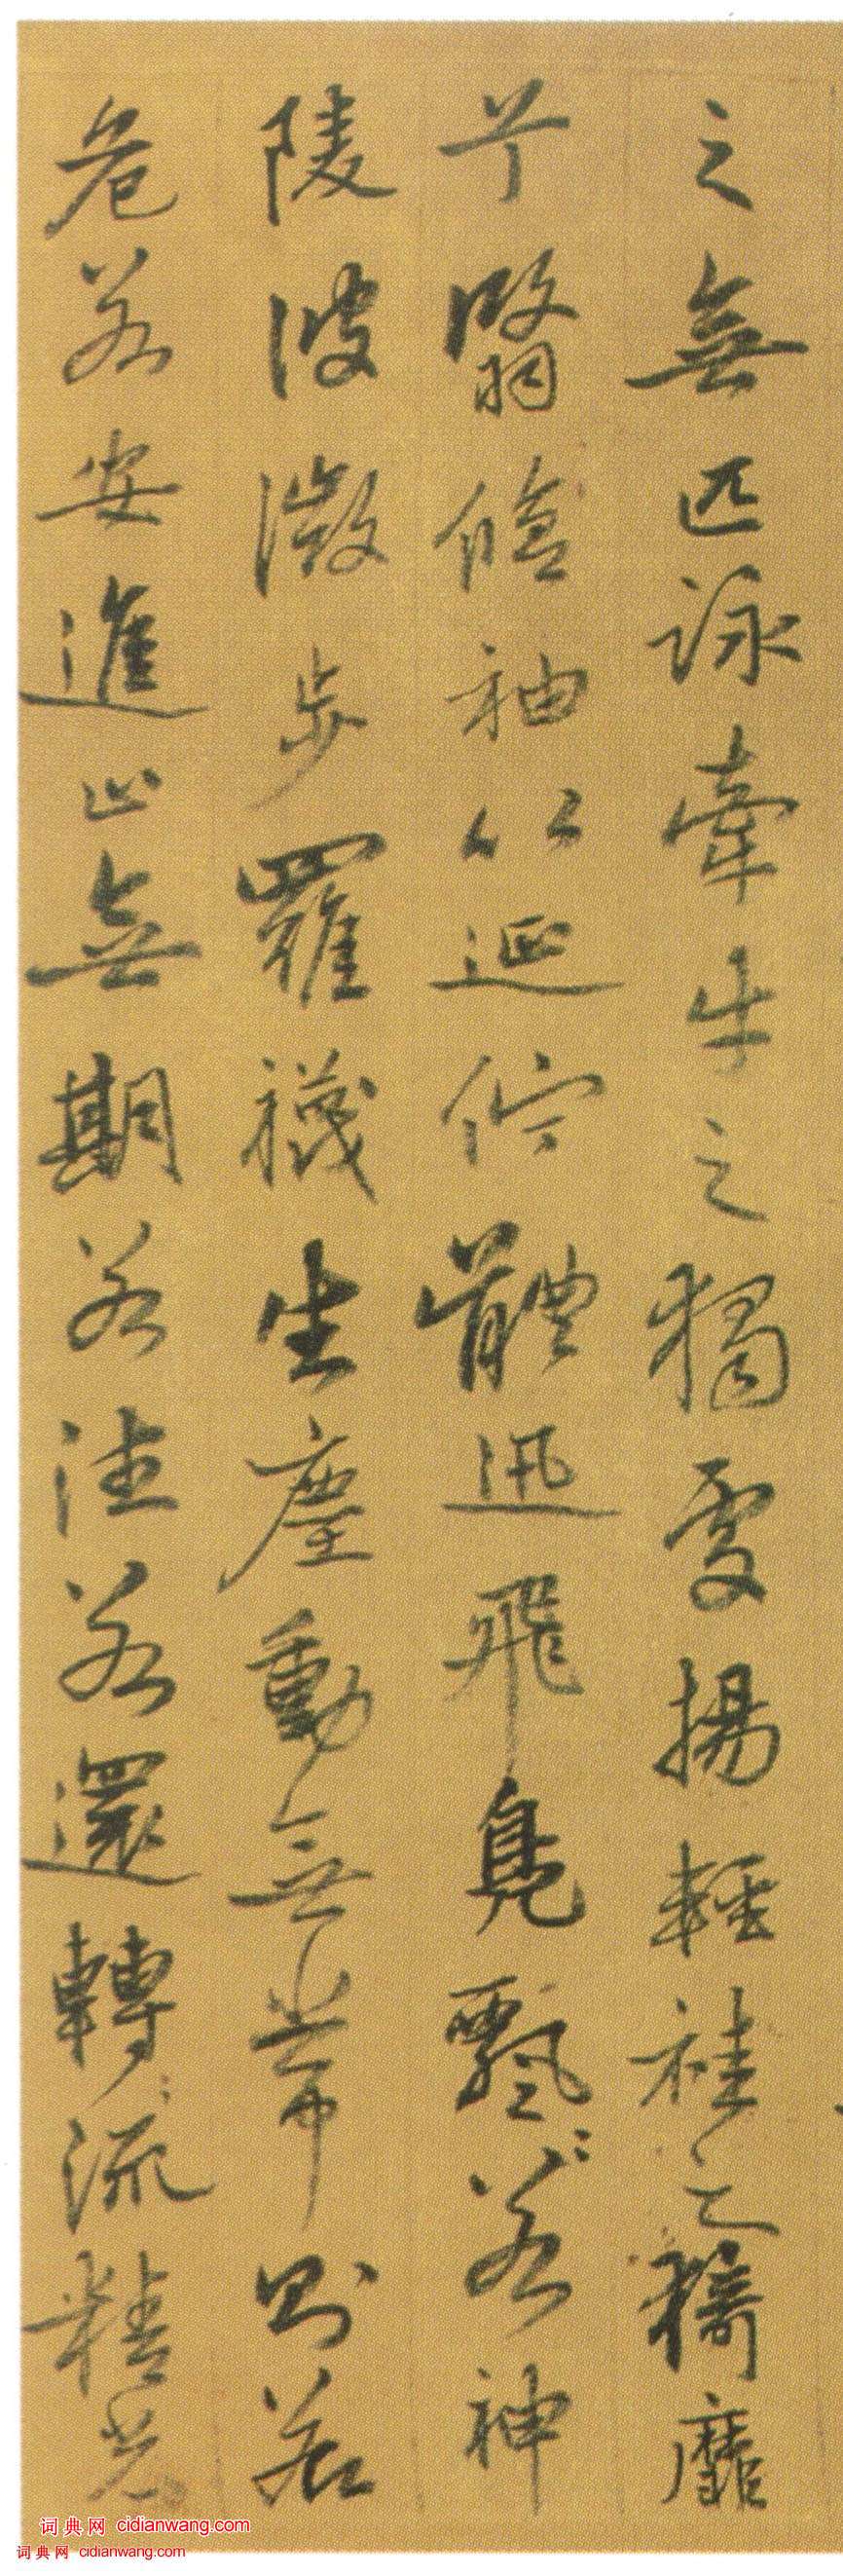 之無匹詠牽牛之獨處揚輕袿之猗靡
兮翳脩袖以延佇體迅飛鳧飄若神
陵波微步羅襪生塵動無常則若
危若安進止無期若往若還轉流精光
词典网 cidianwang.com
词典网 cidianwang.com